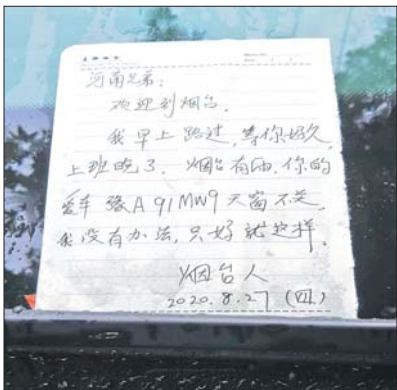 河南兄弟：
欢迎到烟台.
我早上路过,等你好久,
上班晚了.烟台有雨.你的
爱车豫A 91MW9天窗不关,
我没有办法,只好就这样.
烟台人
2020.8.27 (四)